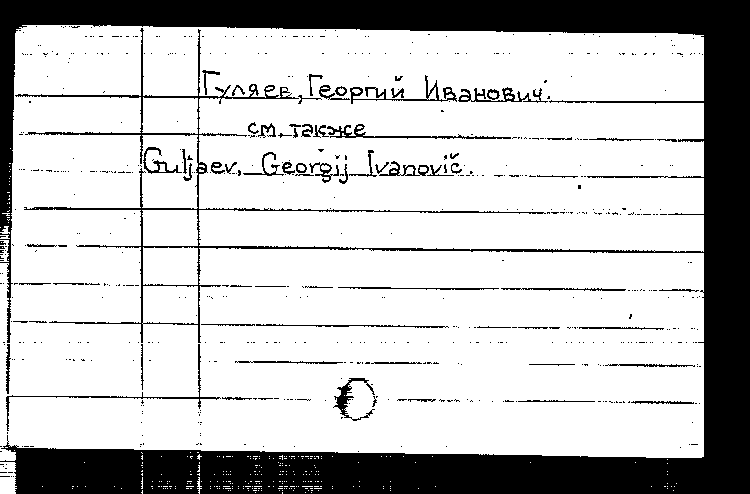 Гуляев, Георгий Иванович.
см. также
Guljaev, Georgij Ivanovič.